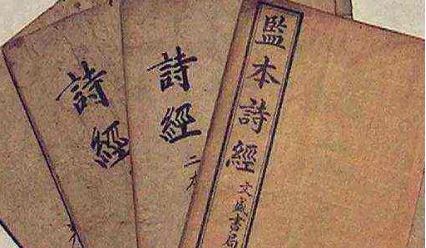 監本詩經 文盛書局
詩經 二
詩經